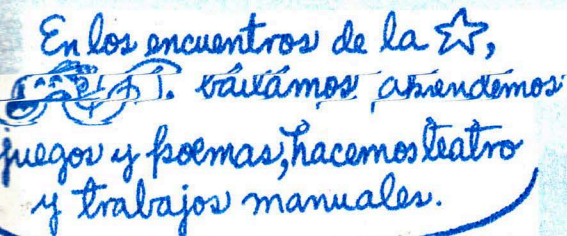 En los encuentros de la ☆,
bailámos aprendemos
juegos y poemas, hacemos teatro
y trabajos manuales.